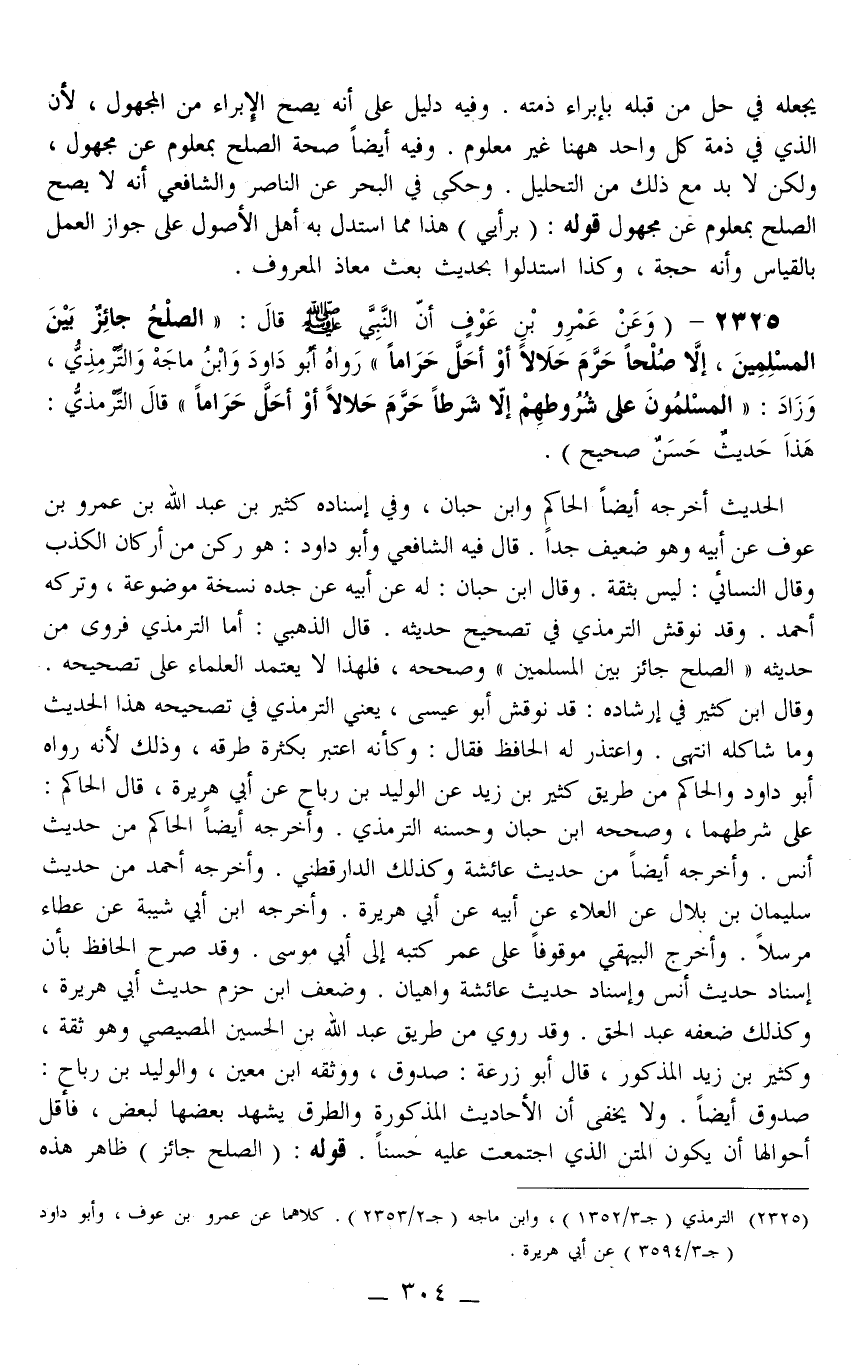 يجعله في حل من قبله بإبراء ذمته . وفيه دليل على أنه يصح الإبراء من المجهول ، لأن
الذي في ذمة كل واحد ههنا غير معلوم . وفيه أيضاً صحة الصلح بمعلوم عن مجهول ،
ولكن لا بد مع ذلك من التحليل . وحكى في البحر عن الناصر والشافعي أنه لا يصح
الصلح بمعلوم عن مجهول قوله : ( برأيي ) هذا مما استدل به أهل الأصول على جواز العمل
بالقياس وأنه حجة ، وكذا استدلوا بحديث بعث معاذ المعروف .
٢٣٢٥ – ( وَعَنْ عَمْرِو بْنِ عَوْفٍ أنّ النَّبِيَّ ﷺ قالَ : « الصلْحُ جائِزٌ بَيْنَ
المسْلِمِينَ ، إلَّا صُلْحاً حَرَّمَ حَلَالاً أوْ أحَلَّ حَرَاماً » رَواهُ أبُو دَاودَ وَابْنُ ماجَهْ وَالتِّرْمِذِيُّ ،
وَزَادَ : « المسْلمُونَ على شُرُوطهِمْ إلّا شَرطاً حَرَّمَ حَلالاً أوْ أحَلَّ حَرَاماً » قالَ التِّرْمذيُّ :
هَذاَ حَديثٌ حَسَنٌ صحيح ) .
الحديث أخرجه أيضاً الحاكم وابن حبان ، وفي إسناده كثير بن عبد الله بن عمرو بن
عوف عن أبيه وهو ضعيف جداً . قال فيه الشافعي وأبو داود : هو ركن من أركان الكذب
وقال النسائي : ليس بثقة . وقال ابن حبان : له عن أبيه عن جده نسخة موضوعة ، وتركه
أحمد . وقد نوقش الترمذي في تصحيح حديثه . قال الذهبي : أما الترمذي فروى من
حديثه « الصلح جائز بين المسلمين » وصححه ، فلهذا لا يعتمد العلماء على تصحيحه .
وقال ابن كثير في إرشاده : قد نوقش أبو عيسى ، يعني الترمذي في تصحيحه هذا الحديث
وما شاكله انتهى . واعتذر له الحافظ فقال : وكأنه اعتبر بكثرة طرقه ، وذلك لأنه رواه
أبو داود والحاكم من طريق كثير بن زيد عن الوليد بن رباح عن أبي هريرة ، قال الحاكم :
على شرطهما ، وصححه ابن حبان وحسنه الترمذي . وأخرجه أيضاً الحاكم من حديث
أنس . وأخرجه أيضاً من حديث عائشة وكذلك الدارقطني . وأخرجه أحمد من حديث
سليمان بن بلال عن العلاء عن أبيه عن أبي هريرة . وأخرجه ابن أبي شيبة عن عطاء
مرسلاً . وأخرج البيهقي موقوفاً على عمر كتبه إلى أبي موسى . وقد صرح الحافظ بأن
إسناد حديث أنس وإسناد حديث عائشة واهيان . وضعف ابن حزم حديث أبي هريرة ،
وكذلك ضعفه عبد الحق . وقد روي من طريق عبد الله بن الحسين المصيصي وهو ثقة ،
وكثير بن زيد المذكور ، قال أبو زرعة : صدوق ، ووثقه ابن معين ، والوليد بن رباح :
صدوق أيضاً . ولا يخفى أن الأحاديث المذكورة والطرق يشهد بعضها لبعض ، فأقل
أحوالها أن يكون المتن الذي اجتمعت عليه حَسناً . قوله : ( الصلح جائز ) ظاهر هذه
(٢٣٢٥) الترمذي ( جـ٣/١٣٥٢ ) ، وابن ماجه ( جـ٢/٢٣٥٣ ) . كلاهما عن عمرو بن عوف ، وأبو داود
( جـ٣/٣٥٩٤ ) عن أبي هريرة .
– ٣٠٤ –